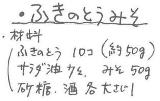 ・ふきのとうみそ
・材料
ふきのとう 10コ (約50g)
サラダ油 少々、みそ 50g
砂糖、酒 各大さじ1